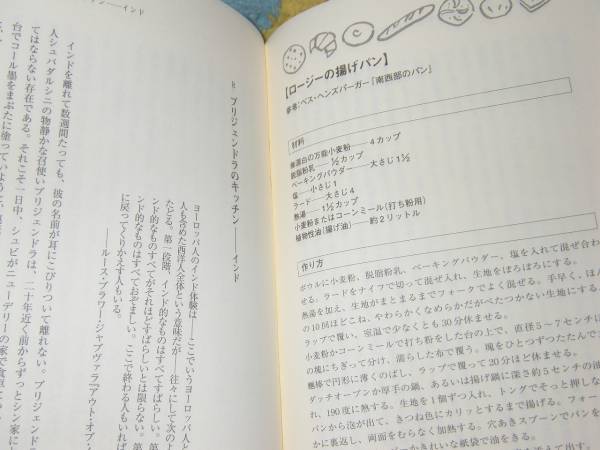 【ロージーの揚げパン】
参考：ベス・ヘンズパーガー『南西部のパン』
材料
無漂白の万能小麦粉——4カップ
脱脂粉乳——½カップ
ベーキングパウダー——大さじ1½
塩——小さじ1
ラード——大さじ4
熱湯——1½カップ
小麦粉またはコーンミール(打ち粉用)
植物性油(揚げ油)——約2リットル
作り方
ボウルに小麦粉、脱脂粉乳、ベーキングパウダー、塩を入れて混ぜ合わ
せる。ラードをナイフで切って混ぜ入れ、生地をぼろぼろにする。
熱湯を加え、生地がまとまるまでフォークでよく混ぜる。手早く、ほん
の10回ほどこね、やわらかくなめらかだがべたつかない生地にする。
ラップで覆い、室温で少なくとも30分休ませる。
小麦粉かコーンミールで打ち粉をした台の上で、直径5〜7センチに
の塊にちぎって分け、濡らした布で覆う。塊をひとつずつたたんで
麺棒で円形に薄くのばし、ラップで覆って20分ほど休ませる。
ダッチオーブンか厚手の鍋、あるいは揚げ鍋に深さ約5センチの油
れ、190度に熱する。生地を1個ずつ入れ、トングでそっと押しな
パンから泡が出て、きつね色にカリッとするまで揚げる。フォー
かに裏返し、両面をむらなく加熱する。穴あきスプーンでパンを
ーパーかきれいな紙袋で油をきる。
8 ブリジェンドラのキッチン——インド
ヨーロッパ人のインド体験は——ここでいうヨーロッパ人と
人も含めた西洋人全体という意味だが——往々にして次のよ
たどる。第一段階、インド的なものはすべてすばらしい。
ンド的なものすべてがそれほどすばらしいとは限らない。第
ンド的なものはすべておぞましい。ここで終わる人もい
に戻ってくりかえす人もいる。
——ルース・プラワー・ジャブヴァラ『アウト・オブ・
インドを離れて数週間たっても、彼の名前が耳にこびりついて離れない。ブリジェンド
人シュバダルシニの物静かな召使いブリジェンドラは、二十年近く前からずっとシン家に
てはならない存在である。それこそ一日中、シュビがニューデリーの家で食卓に
台でコール墨をまぶたに塗っていようと、